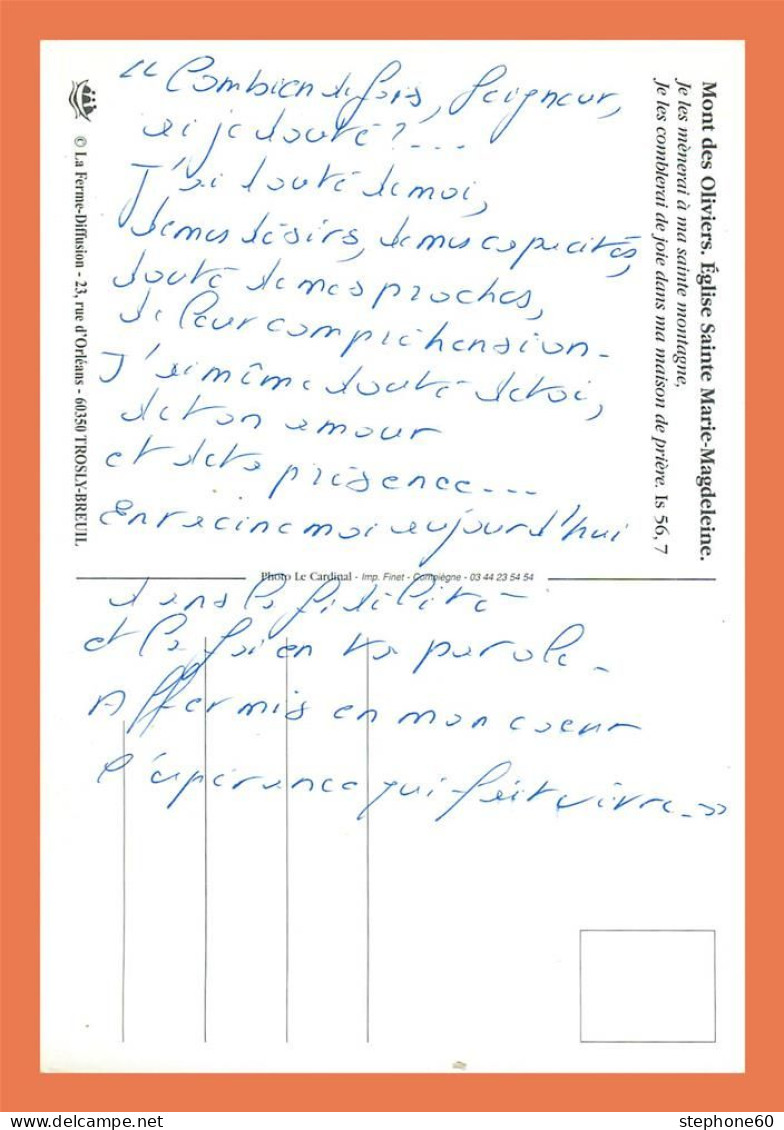 “Combien de fois, Seigneur,
ai je douté ?...
J'ai douté de moi,
de mes désirs, de mes capacités,
douté de mes proches,
de leur compréhension -
J'ai même douté de toi,
de ton amour
et de ta présence...
Enracine moi aujourd'hui
dans la fidélité
et la foi en ta parole -
Affermis en mon coeur
l'espérance qui fait vivre - »
Mont des Oliviers. Église Sainte Marie-Magdeleine.
Je les mènerai à ma sainte montagne,
Je les comblerai de joie dans ma maison de prière. Is 56, 7
© La Ferme-Diffusion - 23, rue d'Orléans - 60350 TROSLY-BREUIL
Photo Le Cardinal - Imp. Finet - Compiègne - 03 44 23 54 54
stephone60